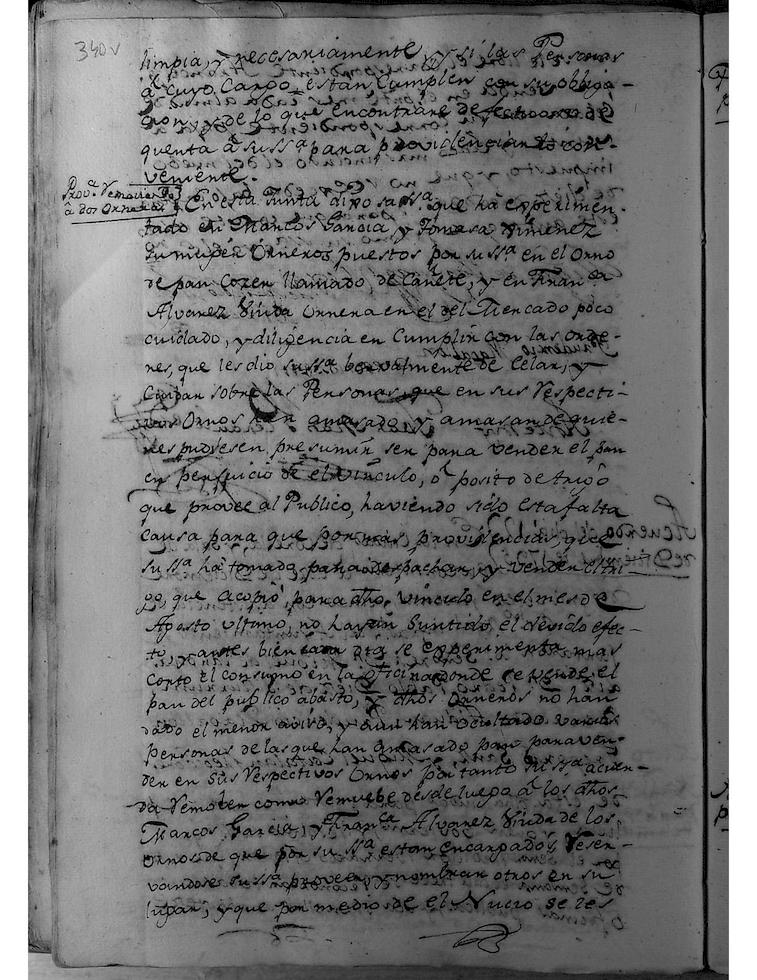 340v
limpia, y necesariamente y si las Personas
â cuyo Cargo estan, Cumplen con su obliga-
cion, y de lo que encontrare defectuoso dê
quenta â su ss.ª para providenciar lo con-
veniente.
â dos Orneros
En esta Junta dixo su ss.ª que hâ experimen-
tado en Marcos Garcia, y Tomasa Ximenez
su muger Orneros puestos por su ss.ª en el Orno
de pan Cozer llamado de Cañete, y en Fran.ca
Alvarez Viuda Ornera en el del Mercado poco
cuidado, y diligencia en Cumplir con las orde-
nes, que les dio su ss.ª bervalmente de Celar, y
Cuidar sobre las Personas, que en sus Respecti-
vos Ornos han amasado, y amasan de quie-
nes pudiesen presumir ser para vender el pan
en perjuicio de el vinculo, o posito de trigo
que provee al Publico, haviendo sido esta falta
causa para que por mas providencias que
su ss.ª hâ tomado para despachar, y vender el tri-
go, que acopió para dho vinculo en el mes de
Agosto ultimo, no hayan surtido el devido efec-
to, y antes bien cada dia se experimenta mas
corto el consumo en la oficina donde se vende el
pan del publico abasto, y dhos Orneros no hân
dado el menor aviso, y aun hân ocultado varias
Personas de las que han amasado pan para ven-
der en sus Respectivos Ornos por tanto su ss.ª acuer-
da Remober como Remuebe desde luego â los dhos
Marcos Garcia, y Fran.ca Alvarez Viuda de los
ornos de que por su ss.ª estan encargados, Reser-
vandose su ss.ª proveer, y nombrar otros en su
lugar; y que por medio de el Nucio se les